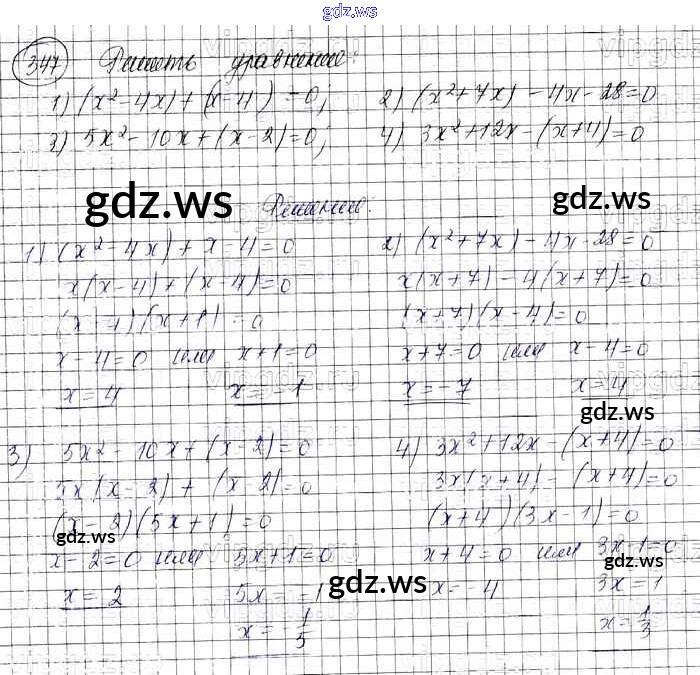 gdz.ws
347 Решить уравнение:
1) (x² - 4x) + (x - 4) = 0; 2) (x² + 7x) - 4x - 28 = 0
3) 5x² - 10x + (x - 2) = 0; 4) 3x² + 12x - (x + 4) = 0
gdz.ws gdz.ws
Решение:
1) (x² - 4x) + x - 4 = 0 2) (x² + 7x) - 4x - 28 = 0
x(x - 4) + (x - 4) = 0 x(x + 7) - 4(x + 7) = 0
(x - 4)(x + 1) = 0 (x + 7)(x - 4) = 0
x - 4 = 0 или x + 1 = 0 x + 7 = 0 или x - 4 = 0
x = 4 x = -1 x = -7 x = 4
gdz.ws
3) 5x² - 10x + (x - 2) = 0 4) 3x² + 12x - (x + 4) = 0
5x(x - 2) + (x - 2) = 0 3x(x + 4) - (x + 4) = 0
(x - 2)(5x + 1) = 0 (x + 4)(3x - 1) = 0
gdz.ws
x - 2 = 0 или 5x + 1 = 0 x + 4 = 0 или 3x - 1 = 0
gdz.ws gdz.ws
x = 2 5x = -1 x = -4 3x = 1
x = 1/5 x = 1/3